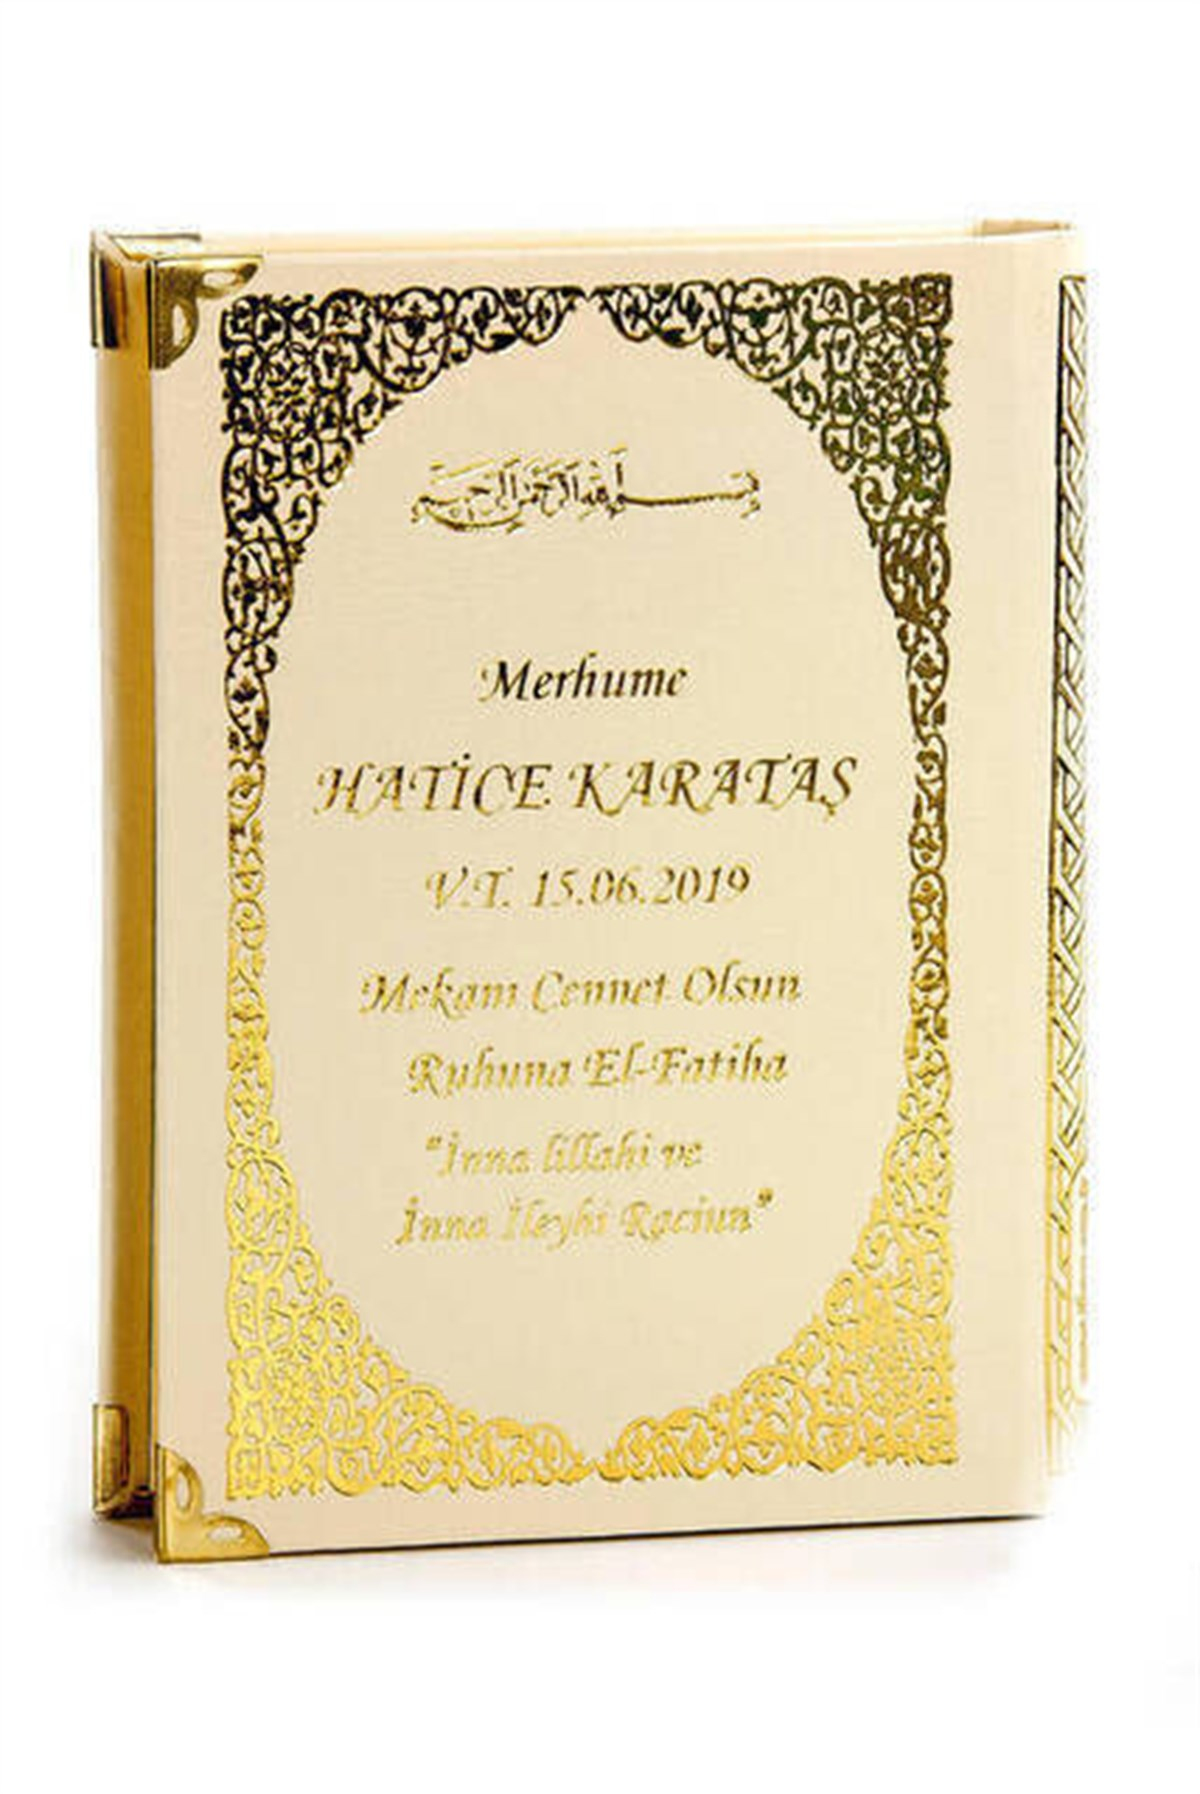 بسم الله الرحمن الرحيم
Merhume
HATİCE KARATAŞ
V.T. 15.06.2019
Mekanı Cennet Olsun
Ruhuna El-Fatiha
"İnna lillahi ve
İnna İleyhi Raciun"